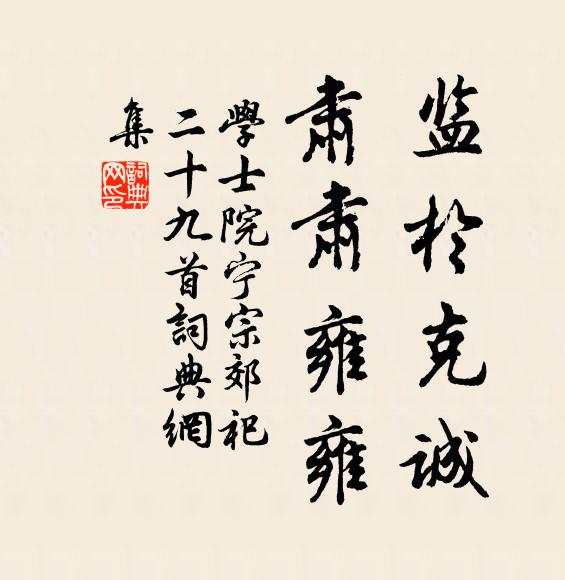 监於克诚
肃肃雍雍
學士院宁宗郊祀
二十九首詞典網
集
詞典网印